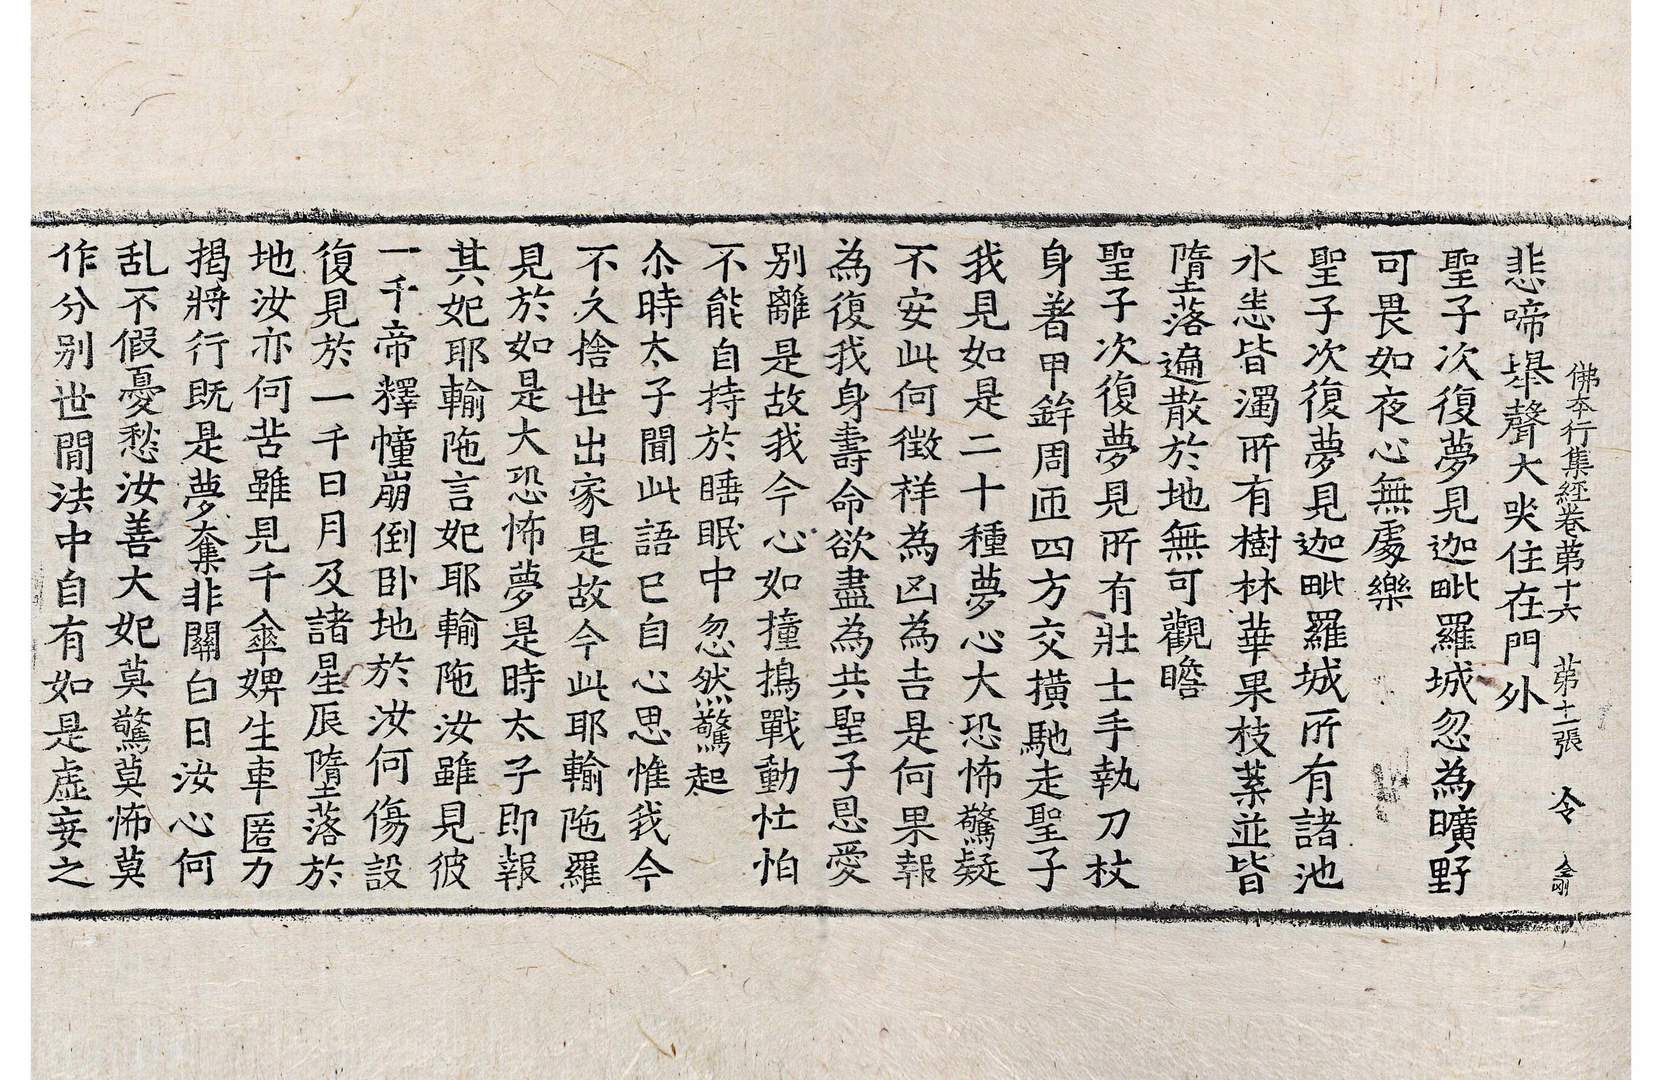 佛夲行集經卷第十六　第十二張　令　金剛
悲啼舉聲大哭住在門外
聖子次復夢見迦毗羅城忽為曠野
可畏如夜心無處樂
聖子次復夢見迦毗羅城所有諸池
水悉皆濁所有樹林華果枝葉並皆
墮落遍散於地無可觀瞻
聖子次復夢見所有壯士手執刀杖
身著甲鉾周匝四方交撗馳走聖子
我見如是二十種夢心大恐怖驚疑
不安此何徵祥為凶為吉是何果報
為復我身壽命欲盡為共聖子恩愛
別離是故我今心如撞搗戰動忙怕
不能自持於睡眠中忽然驚起
尒時太子聞此語已自心思惟我今
不久捨世出家是故今此耶輸陁羅
見於如是大恐怖夢是時太子即報
其妃耶輸陁言妃耶輸陁汝雖見彼
一千帝釋幢崩倒卧地於汝何傷設
復見於一千日月及諸星辰墮落於
地汝亦何苦雖見千傘婢生車匿力
揭將行既是夢奪非關白日汝心何
乱不假憂愁汝善大妃莫驚莫怖莫
作分別世間法中自有如是虛妄之